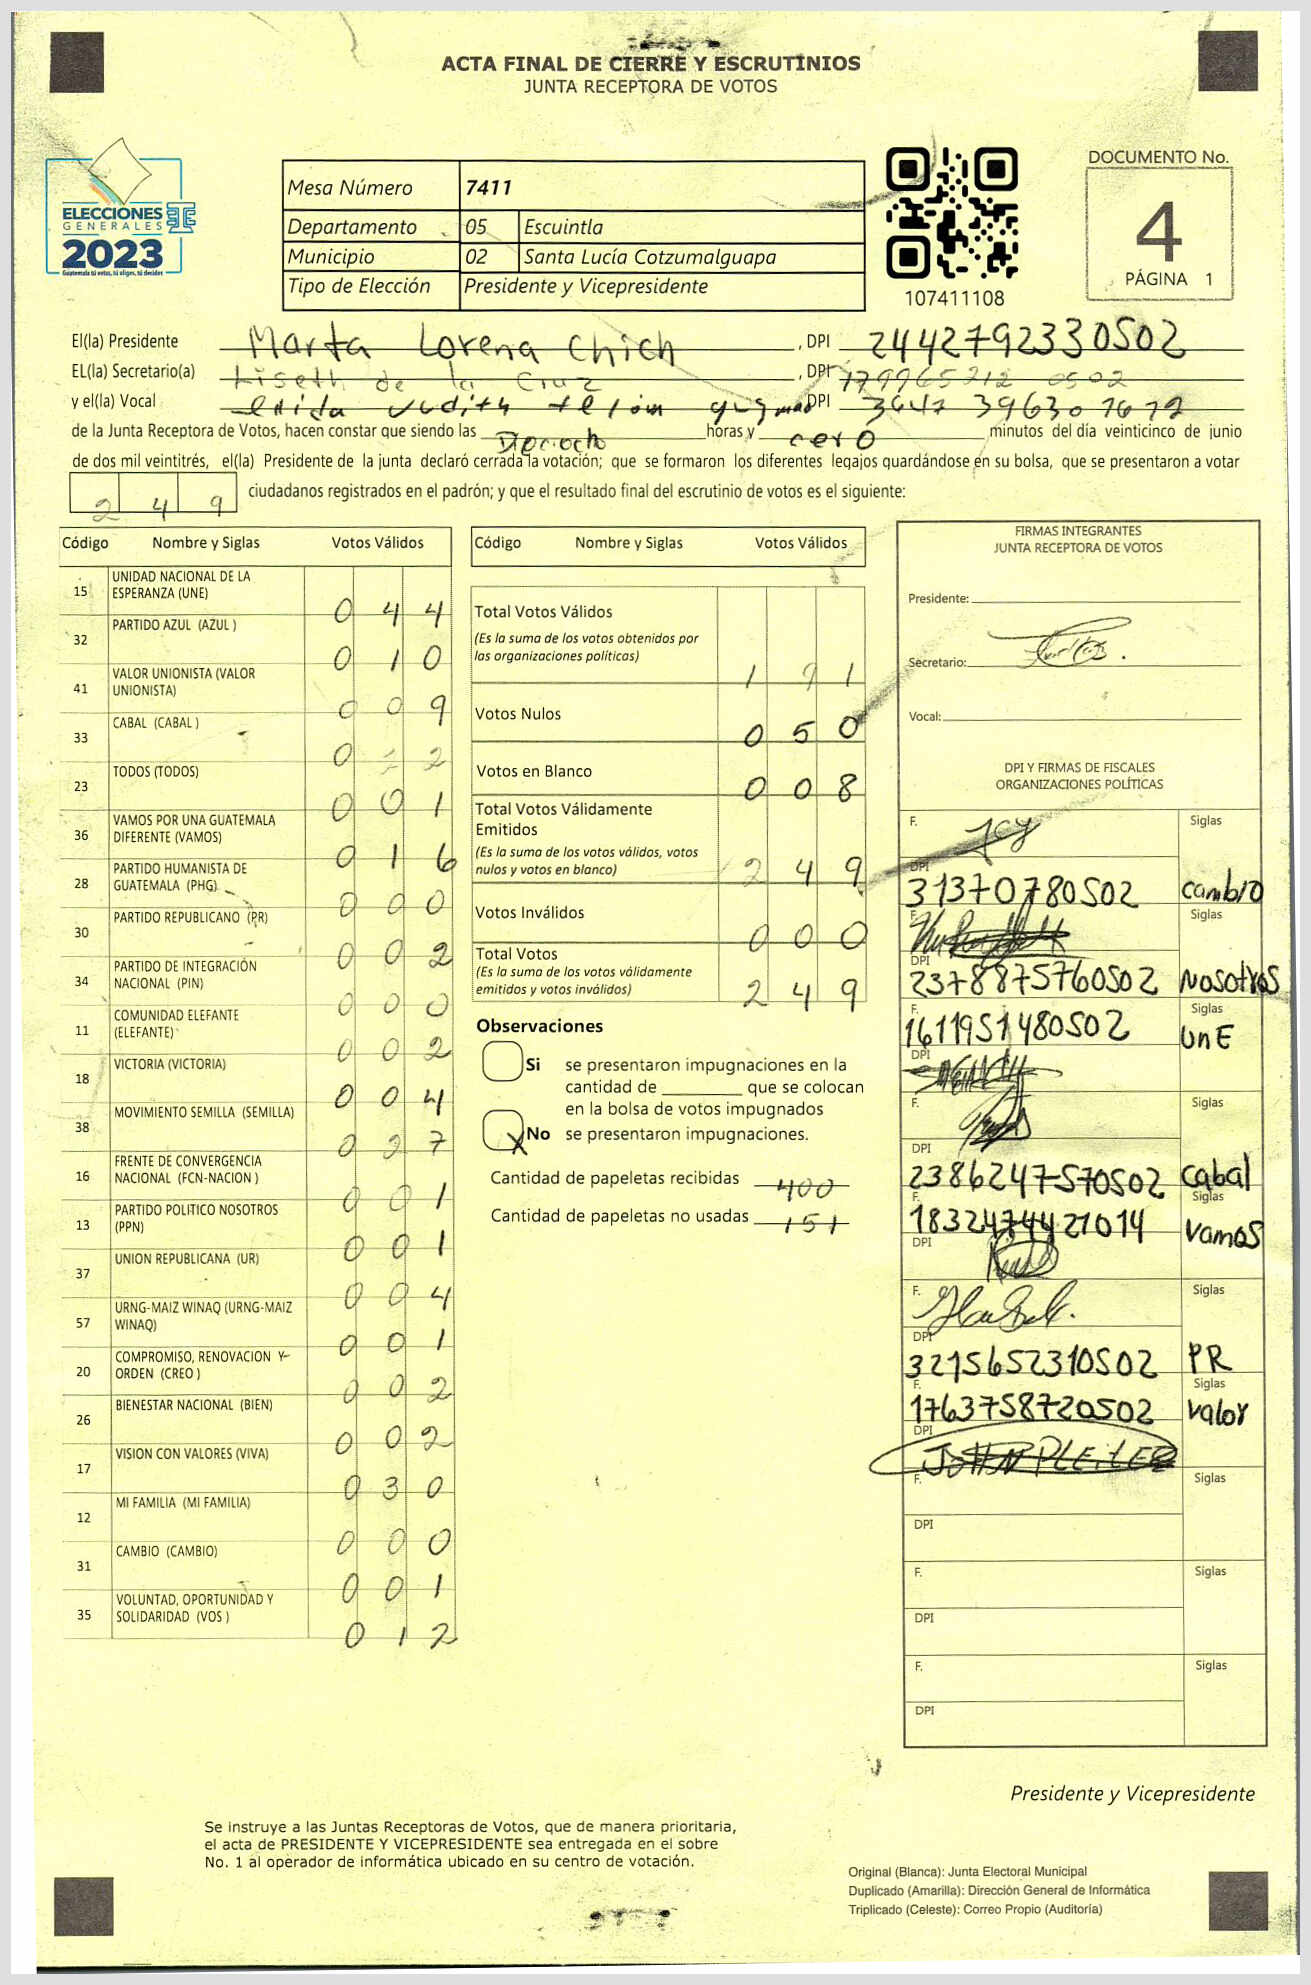 ACTA FINAL DE CIERRE Y ESCRUTINIOS
JUNTA RECEPTORA DE VOTOS
ELECCIONES
GENERALES
2023
Guatemala tú votas, tú eliges, tú decides
Mesa Número 7411
Departamento 05 Escuintla
Municipio 02 Santa Lucía Cotzumalguapa
Tipo de Elección Presidente y Vicepresidente
107411108
DOCUMENTO No.
4
PÁGINA 1
El(la) Presidente Marta Lorena Chich , DPI 2442792330502
EL(la) Secretario(a) Liseth de la Cruz , DPI
y el(la) Vocal Judith DPI
de la Junta Receptora de Votos, hacen constar que siendo las horas y cero minutos del día veinticinco de junio
de dos mil veintitrés, el(la) Presidente de la junta declaró cerrada la votación; que se formaron los diferentes legajos guardándose en su bolsa, que se presentaron a votar
249 ciudadanos registrados en el padrón; y que el resultado final del escrutinio de votos es el siguiente:
Código Nombre y Siglas Votos Válidos
15 UNIDAD NACIONAL DE LA ESPERANZA (UNE) 0 4 4
32 PARTIDO AZUL (AZUL ) 0 1 0
41 VALOR UNIONISTA (VALOR UNIONISTA) 0 0 9
33 CABAL (CABAL ) 0 2 2
23 TODOS (TODOS) 0 0 1
36 VAMOS POR UNA GUATEMALA DIFERENTE (VAMOS) 0 1 6
28 PARTIDO HUMANISTA DE GUATEMALA (PHG) 0 0 0
30 PARTIDO REPUBLICANO (PR) 0 0 2
34 PARTIDO DE INTEGRACIÓN NACIONAL (PIN) 0 0 0
11 COMUNIDAD ELEFANTE (ELEFANTE) 0 0 2
18 VICTORIA (VICTORIA) 0 0 4
38 MOVIMIENTO SEMILLA (SEMILLA) 0 2 7
16 FRENTE DE CONVERGENCIA NACIONAL (FCN-NACION ) 0 0 1
13 PARTIDO POLITICO NOSOTROS (PPN) 0 0 1
37 UNION REPUBLICANA (UR) 0 0 4
57 URNG-MAIZ WINAQ (URNG-MAIZ WINAQ) 0 0 1
20 COMPROMISO, RENOVACION Y ORDEN (CREO ) 0 0 2
26 BIENESTAR NACIONAL (BIEN) 0 0 2
17 VISION CON VALORES (VIVA) 0 3 0
12 MI FAMILIA (MI FAMILIA) 0 0 0
31 CAMBIO (CAMBIO) 0 0 1
35 VOLUNTAD, OPORTUNIDAD Y SOLIDARIDAD (VOS ) 0 1 2
Código Nombre y Siglas Votos Válidos
Total Votos Válidos
(Es la suma de los votos obtenidos por
las organizaciones políticas) 1 9 1
Votos Nulos 0 5 0
Votos en Blanco 0 0 8
Total Votos Válidamente
Emitidos
(Es la suma de los votos válidos, votos
nulos y votos en blanco) 2 4 9
Votos Inválidos 0 0 0
Total Votos
(Es la suma de los votos válidamente
emitidos y votos inválidos) 2 4 9
Observaciones
Si se presentaron impugnaciones en la
cantidad de ________ que se colocan
en la bolsa de votos impugnados
X No se presentaron impugnaciones.
Cantidad de papeletas recibidas 400
Cantidad de papeletas no usadas 151
FIRMAS INTEGRANTES
JUNTA RECEPTORA DE VOTOS
Presidente:
Secretario:
Vocal:
DPI Y FIRMAS DE FISCALES
ORGANIZACIONES POLÍTICAS
F. Siglas
DPI
31370780502 cambio
F. Siglas
DPI
2378875760502 Nosotros
F. Siglas
1611951480502 UnE
DPI
F. Siglas
DPI
2386247570502 cabal
F. Siglas
1832474421014 vamos
DPI
F. Siglas
DPI
3215652310502 PR
F. Siglas
1763758720502 valor
DPI
F. Siglas
DPI
F. Siglas
DPI
F. Siglas
DPI
Presidente y Vicepresidente
Se instruye a las Juntas Receptoras de Votos, que de manera prioritaria,
el acta de PRESIDENTE Y VICEPRESIDENTE sea entregada en el sobre
No. 1 al operador de informática ubicado en su centro de votación.
Original (Blanca): Junta Electoral Municipal
Duplicado (Amarilla): Dirección General de Informática
Triplicado (Celeste): Correo Propio (Auditoría)